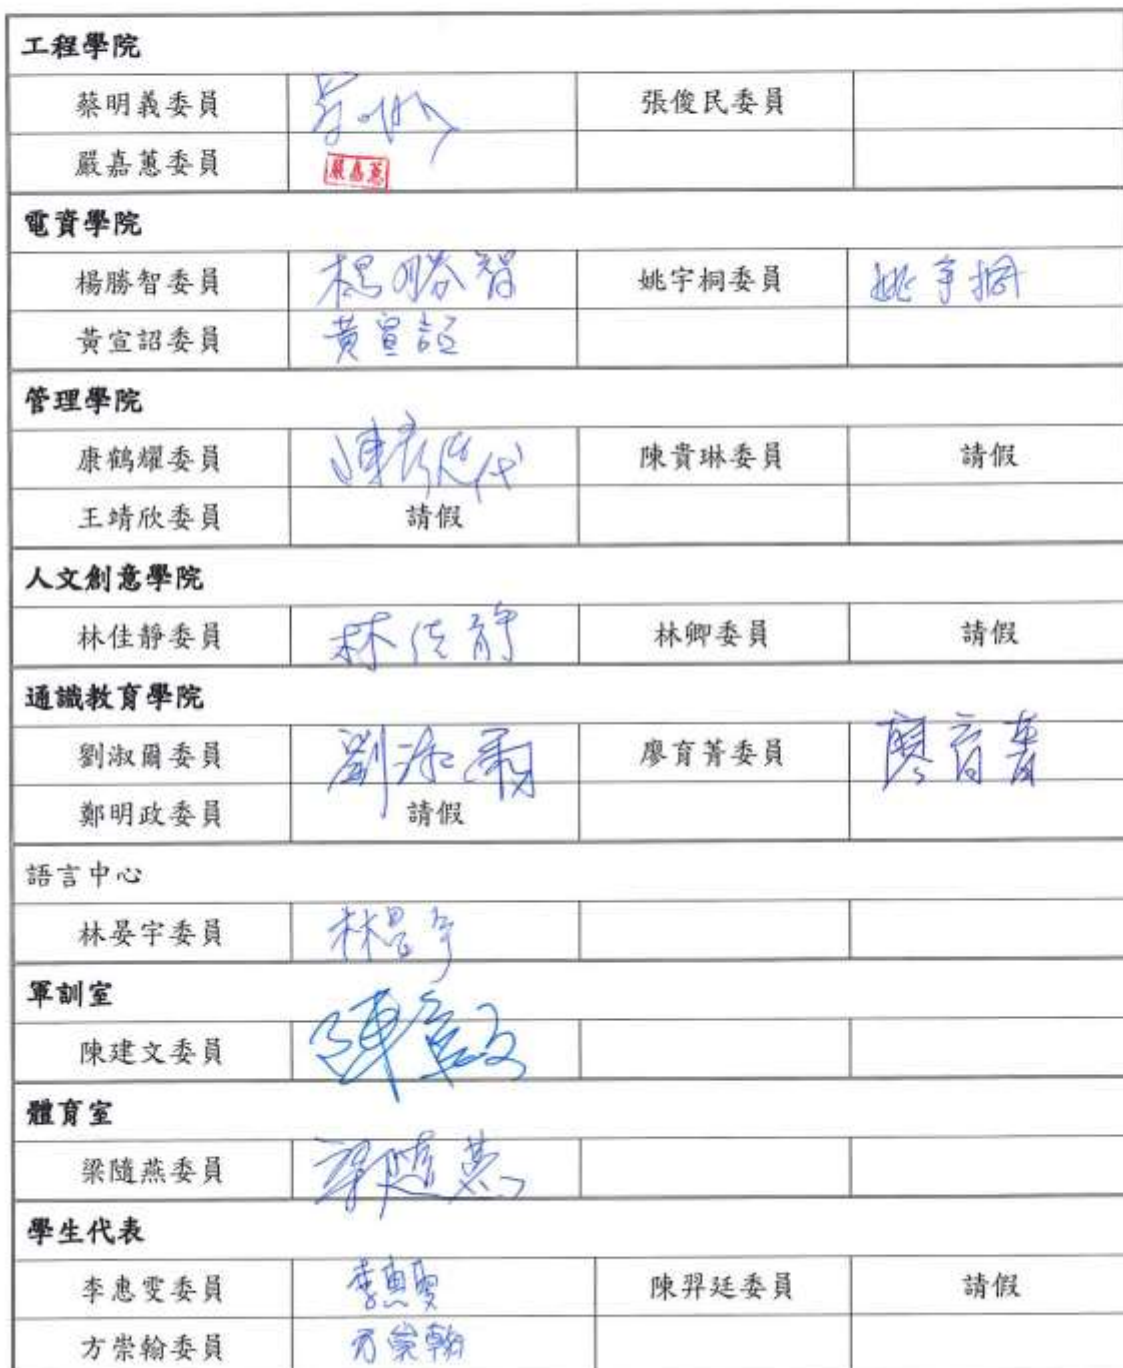 工程學院
蔡明義委員 張俊民委員
嚴嘉蕙委員 嚴嘉蕙
電資學院
楊勝智委員 楊勝智 姚宇桐委員 姚宇桐
黃宣詔委員 黃宣詔
管理學院
康鶴耀委員 陳彥廷代 陳貴琳委員 請假
王靖欣委員 請假
人文創意學院
林佳靜委員 林佳靜 林卿委員 請假
通識教育學院
劉淑爾委員 劉淑爾 廖育菁委員 廖育菁
鄭明政委員 請假
語言中心
林晏宇委員 林晏宇
軍訓室
陳建文委員 陳建文
體育室
梁隨燕委員 梁隨燕
學生代表
李惠雯委員 李惠雯 陳羿廷委員 請假
方崇翰委員 方崇翰